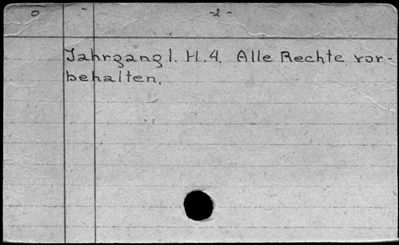 o - -2-
Jahrgang 1. H.4. Alle Rechte vor-
behalten.